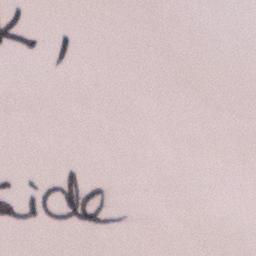 k,
side